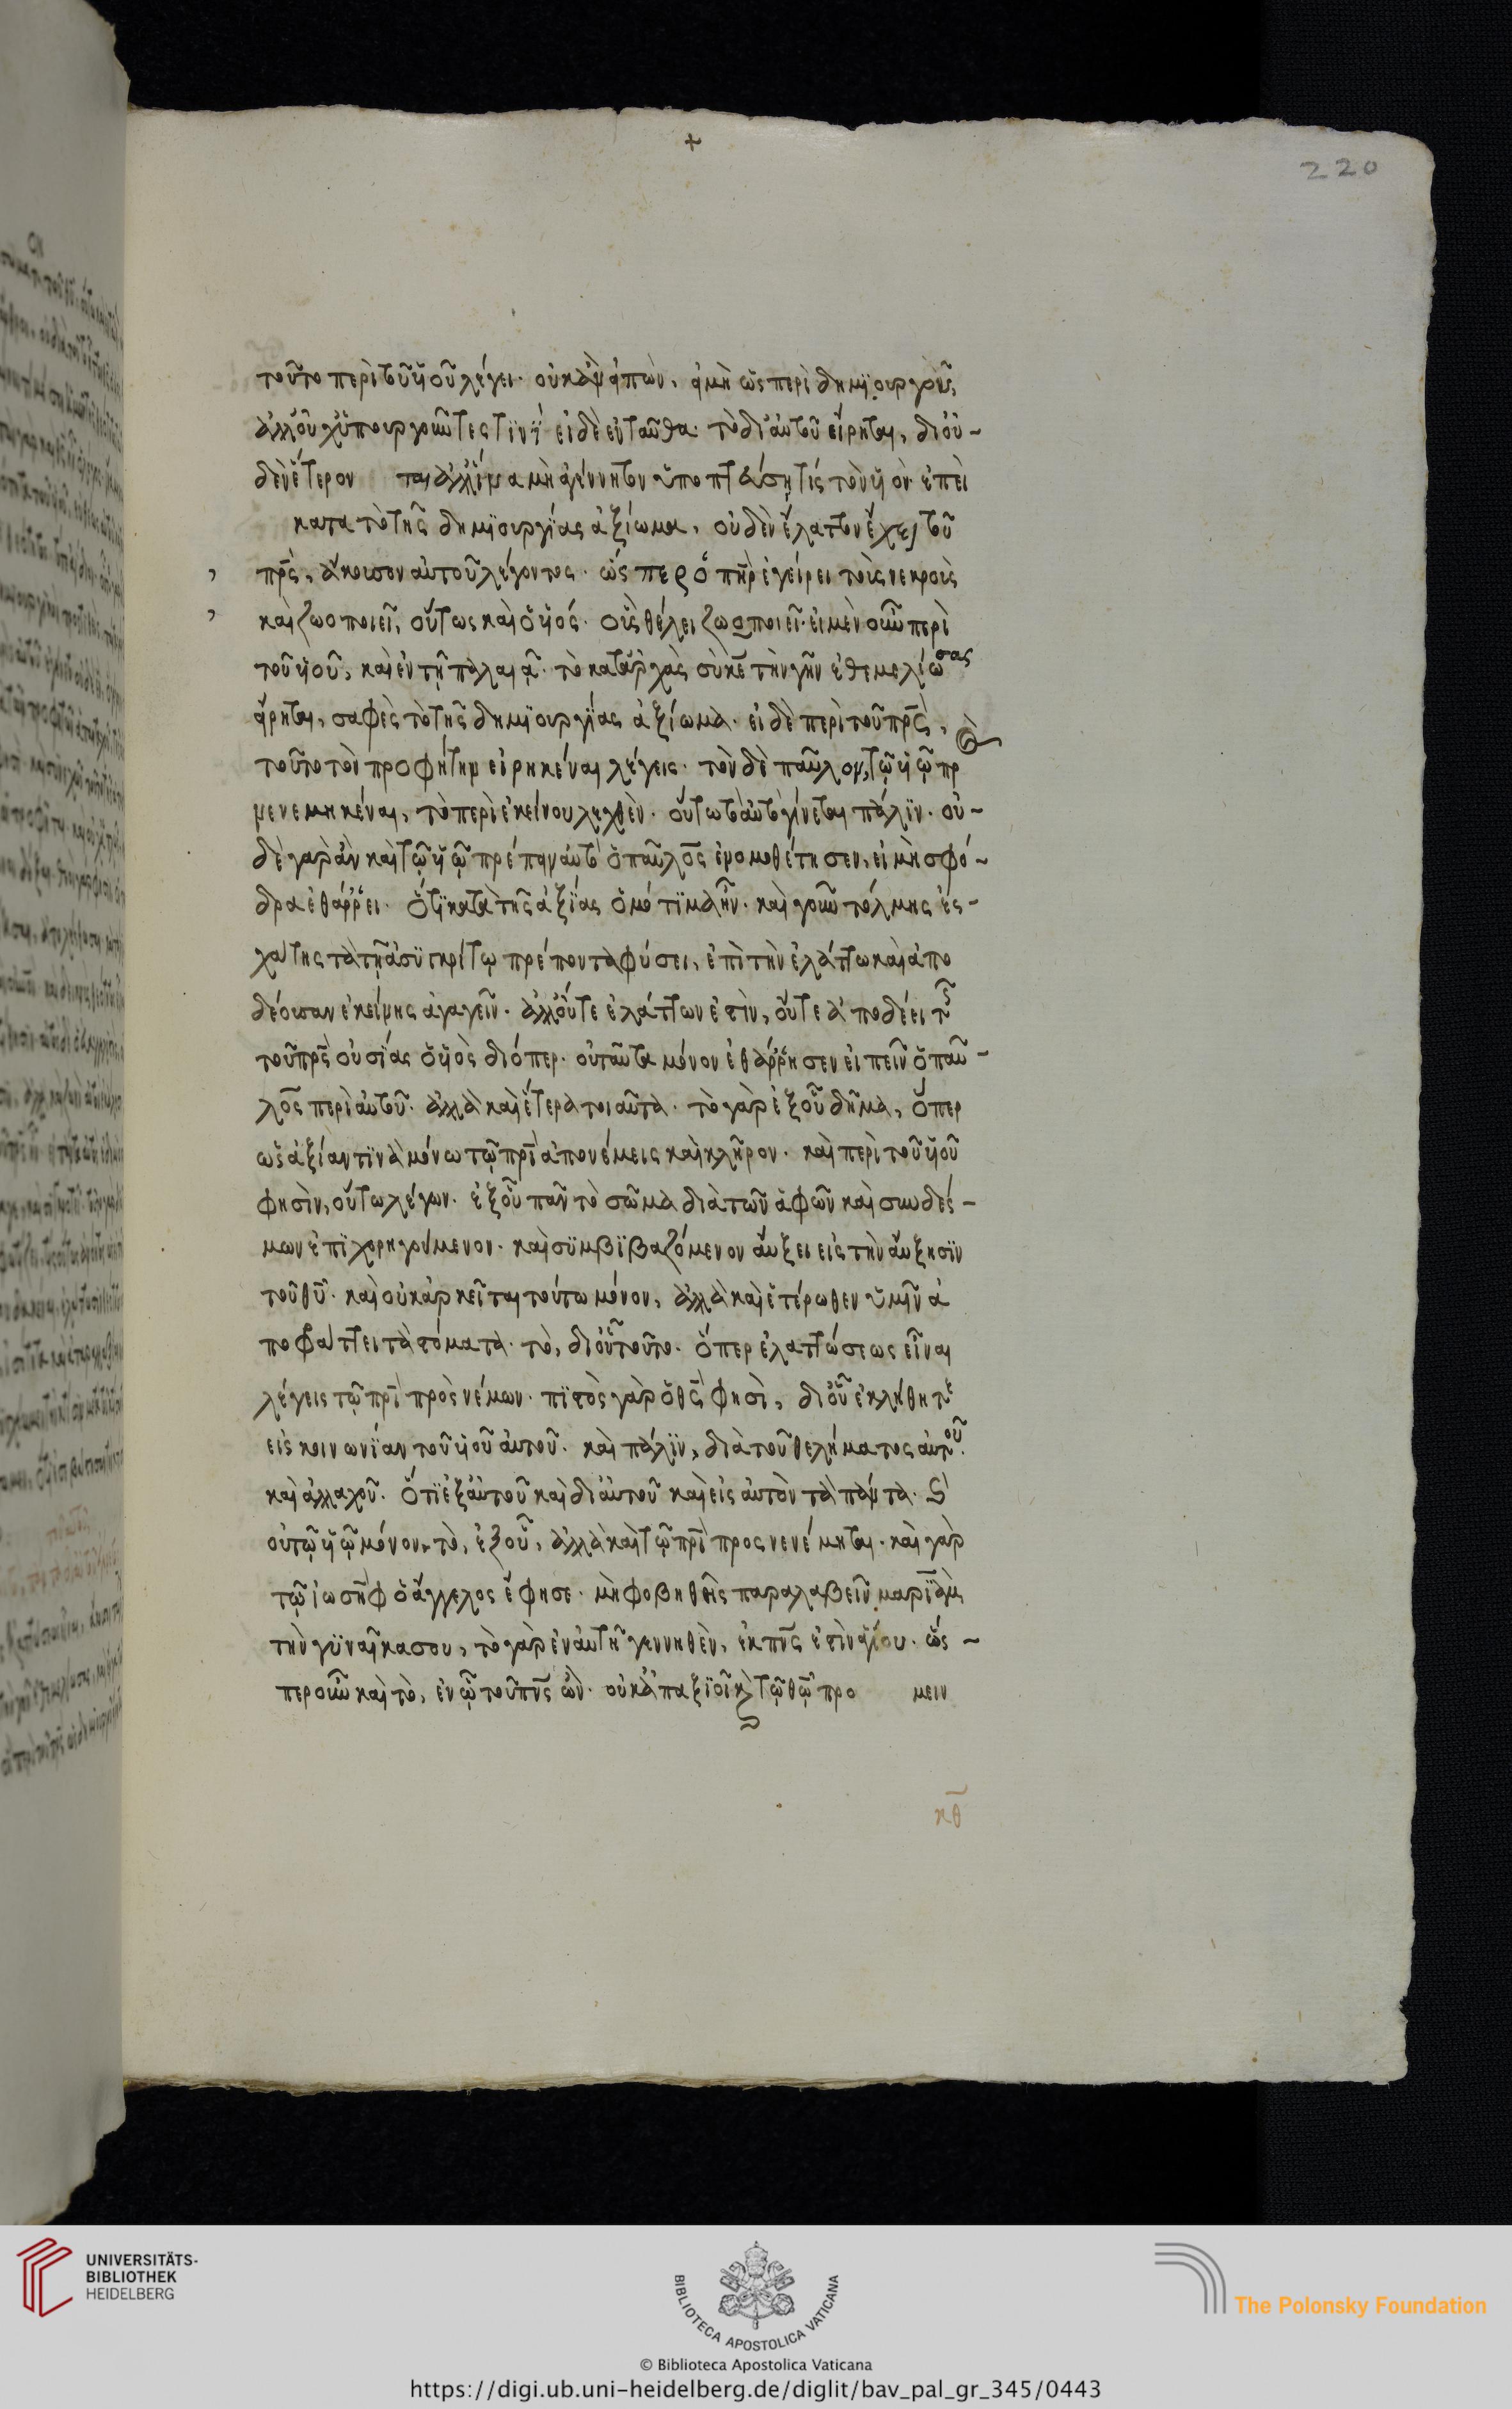 +
220
τοῦτο περὶ τοῦ ϋἱοῦ λέγει. οὐκ ἂν εἰπὼν, εἰ μὴ ὡς περὶ δημϊουργοῦ,
ἀλλ' οὐχ ὑπουργοῦντες τινί εἰ δὲ ἐνταῦθα τὸ δι' αὐτοῦ εἴρηται, δι' οὐ-
δὲν ἕτερον ται ἀλλ' ἵνα μὴ ἀγέννητον ὑποπτεύση τίς τὸν ϋἱὸν ἐπεὶ
κατα τὸ τῆς δημϊουργίας ἀξίωμα, οὐδὲν ἔλαττον ἔχει τοῦ
πρς, ἄκουσον αὐτοῦ λέγοντος. ὥς περ ὁ πηρ ἐγείρει τοὺς νεκροὺς
καὶ ζωοποιεῖ, οὕτως καὶ ὁ ϋἱός. οὓς θέλει ζωοποιεῖ. εἰ μὲν οὖν περὶ
τοῦ ϋἱοῦ, καὶ ἐν τῆ παλαιᾶ. τὸ κατ' ἀρχὰς σὺ κε τὴν γῆν ἐθεμελίωσας
εἴρηται, σαφὲς τὸ τῆς δημϊουργίας ἀξίωμα. εἰ δὲ περὶ τοῦ πρς,
τοῦτο τὸν προφήτην εἰρηκέναι λέγεις. τὸν δὲ παῦλον, τῶ ϋἱῶ πρ
νενεμηκέναι, τὸ περὶ ἐκείνου λεχθὲν. οὕτω τὸ αὐτὸ γίνεται πάλϊν. οὐ-
δὲ γὰρ ἂν καὶ τῶ ϋἱῶ πρέπειν αὐτὸ ὁ παῦλος ἐνομοθέτησεν, εἰ μὴ σφό-
δρα ἐθάρρει. ὅτι κατὰ τῆς ἀξίας ὁμότιμα ἦν. καὶ γοῦν τόλμης ἐς-
χάτης τὰ τῆ ἀσυγκρίτω πρέποντα φύσει, ἐπὶ τὴν ἐλάττω καὶ ἀπο
δέουσαν ἐκείνης ἀγαγεῖν. ἀλλ' οὔτε ἐλάττων ἐστὶν, οὔτε ἀποδέει τῆς
τοῦ πρς οὐσίας ὁ ϋἱὸς διόπερ. οὐ ταῦτα μόνον ἐθάρρησεν εἰπεῖν ὁ παῦ-
λος περὶ αὐτοῦ. ἀλλὰ καὶ ἕτερα τοιαῦτα. τὸ γὰρ ἐξ οὗ δῆμα, ὅπερ
ὡς ἀξίαν τϊνὰ μόνω τῶ πρι ἀπονέμεις καὶ κλῆρον. καὶ περὶ τοῦ ϋἱοῦ
φησὶν, οὕτω λέγων. ἐξ οὗ πᾶν τὸ σῶμα διὰ τῶν ἁφῶν καὶ συνδές-
μων ἐπϊχορηγούμενον. καὶ σϋμβϊβαζόμενον αὔξει εἰς τὴν αὔξησϊν
τοῦ θυ. καὶ οὐκ ἀρκεῖται τούτω μόνον, ἀλλὰ καὶ ἑτέρωθεν ὑμῖν ἀ
ποφράττει τὰ στόματα. τὸ, δι' οὗ τοῦτο. ὅπερ ἐλαττώσεως εἶναι
λέγεις τῶ πρι πρὸς νέμων. πϊστὸς γὰρ ὁ θς φησὶ, δι' οὗ ἐκλήθητε
εἰς κοινωνϊαν τοῦ ϋἱοῦ αὐτοῦ. καὶ πάλϊν, διὰ τοῦ θελήματος αὐτοῦ.
καὶ ἀλλαχοῦ. ὅτϊ ἐξ αὐτοῦ καὶ δι' αὐτοῦ καὶ εἰς αὐτὸν τὰ πάντα. καὶ
οὐ τῶ ϋἱῶ μόνον. τὸ, ἐξ οὗ, ἀλλὰ καὶ τῶ πρι προς νενέμηται. καὶ γὰρ
τῶ ἰωσὴφ ὁ ἄγγελος ἔφησε. μὴ φοβηθεὶς παραλαβεῖν μαρϊὰμ
τὴν γϋναῖκα σου, τὸ γὰρ ἐν αὐτῆ γεννηθὲν, ἐκ πνς ἐστὶν ἁγίου. ὥς-
περ οὖν καὶ τὸ, ἐν ὧ τοῦ πνς ὢν. οὐκ ἀπαξϊοῖ καὶ τῶ θῶ προ μειν
κθ
UNIVERSITÄTS-
BIBLIOTHEK
HEIDELBERG
BIBLIOTECA APOSTOLICA VATICANA
The Polonsky Foundation
© Biblioteca Apostolica Vaticana
https://digi.ub.uni-heidelberg.de/diglit/bav_pal_gr_345/0443